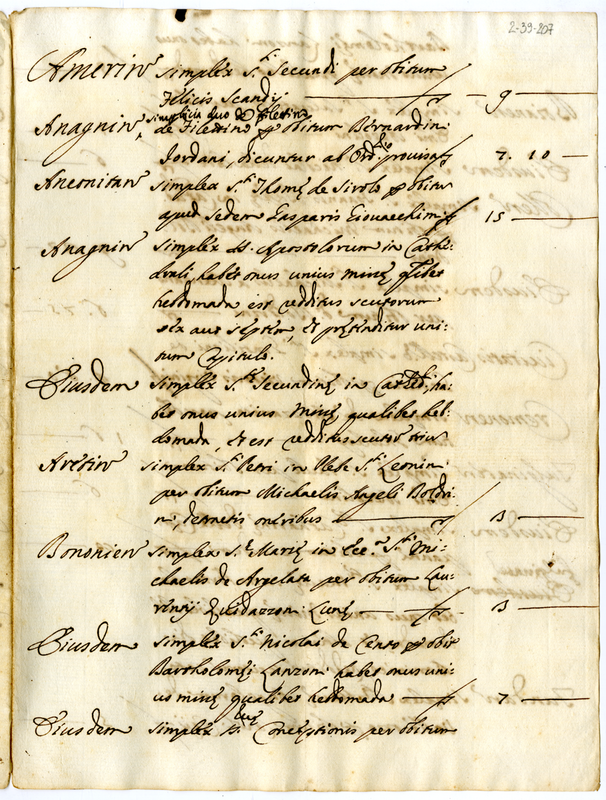 2-39-207
Amerinˢ simplex S.ti Secundi per obitum
Felicis Scandij 9
simplicia duo de Filettino
Anagninˢ de Filettino per obitum Bernardin
Jordani, dicuntur ab Ord.rio provisa 7. 10
Anconitanˢ simplex S.ti Thomę de Sirolo per obitu
apud sedem Gasparis Giouacchini 15
Anagninˢ simplex SS. Apostolorum in Cathe:
drali, habet onus unius missę qlibet
hebdomada, est redditus scutorum
sex aut septem, et prętenditur uni:
tum Capitulo.
Eiusdem simplex S.tę Secundinę in Cathed: ha:
bet onus unius missę qualibet heb:
domada, et est redditus scutorˢ trium
Aretinˢ simplex S.ti Petri in Plebe S.ti Leonin
per obitum Michaelis Angeli Boldri
ni, detractis oneribus 13
Bononienˢ simplex S.tę Marię in Ecc.a S.ti Mi:
chaelis de Argelata per obitum Lau:
rentij Guidazzoni Lunę 13
Eiusdem simplex S.ti Nicolai de Cento per obit
Bartholomęi Lanzoni habet onus uni:
us missę qualibet hebdomada 7
Eiusdem simplex Conceptionis per obitum